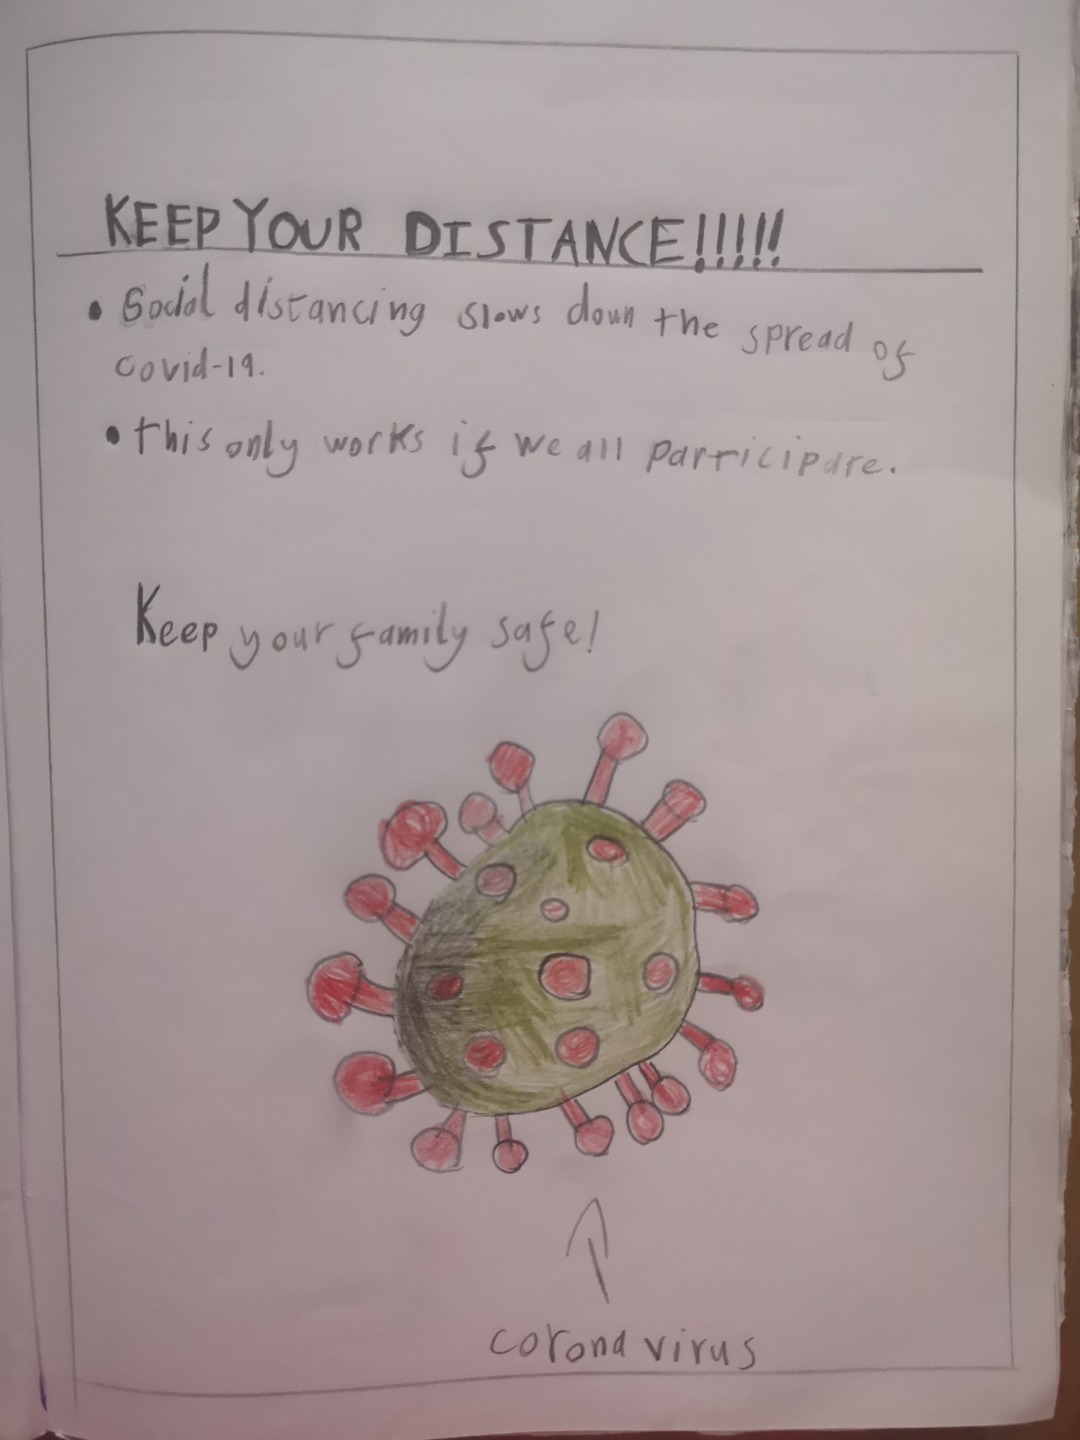 KEEP YOUR DISTANCE!!!!!
• Social distancing slows down the spread of
covid-19.
• this only works if we all participate.
Keep your family safe!
corona virus